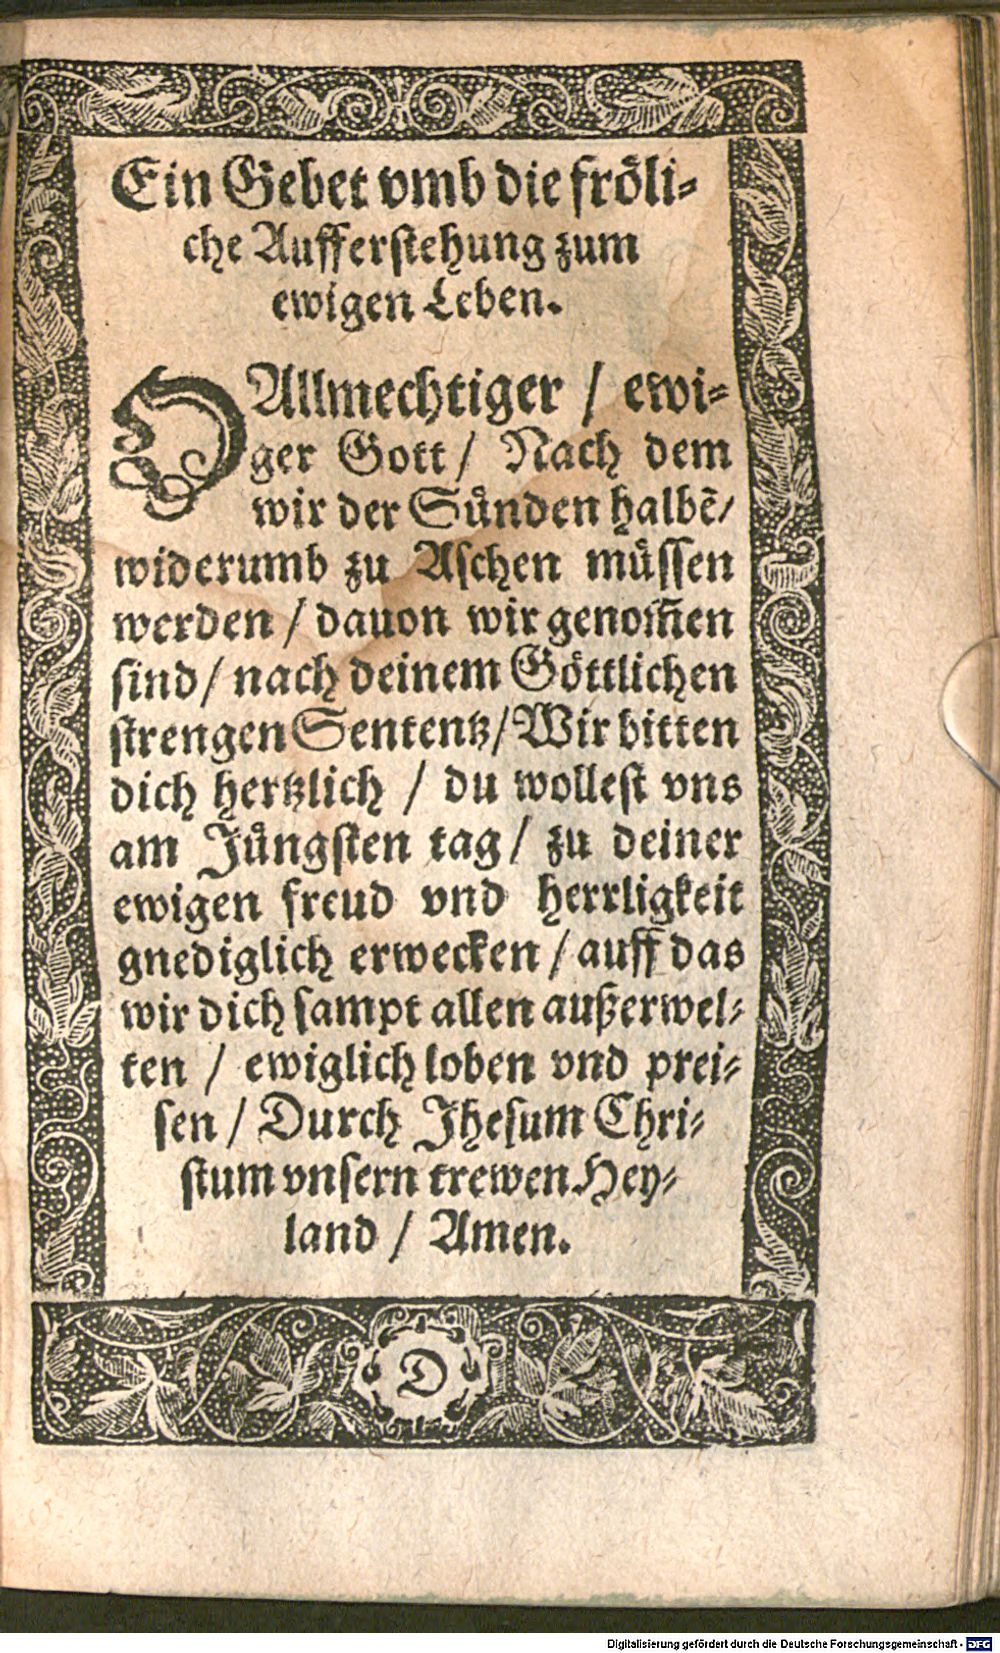 Ein Gebet vmb die froͤli-
che Aufferstehung zum
ewigen Leben.
O Allmechtiger / ewi-
ger Gott / Nach dem
wir der Suͤnden halbē /
widerumb zu Aschen muͤssen
werden / dauon wir genom̄en
sind / nach deinem Goͤttlichen
strengen Sententz / Wir bitten
dich hertzlich / du wollest vns
am Juͤngsten tag / zu deiner
ewigen freud vnd herrligkeit
gnediglich erwecken / auff das
wir dich sampt allen außerwel-
ten / ewiglich loben vnd prei-
sen / Durch Jhesum Chri-
stum vnsern trewen Hey-
land / Amen.
D
Digitalisierung gefördert durch die Deutsche Forschungsgemeinschaft - DFG